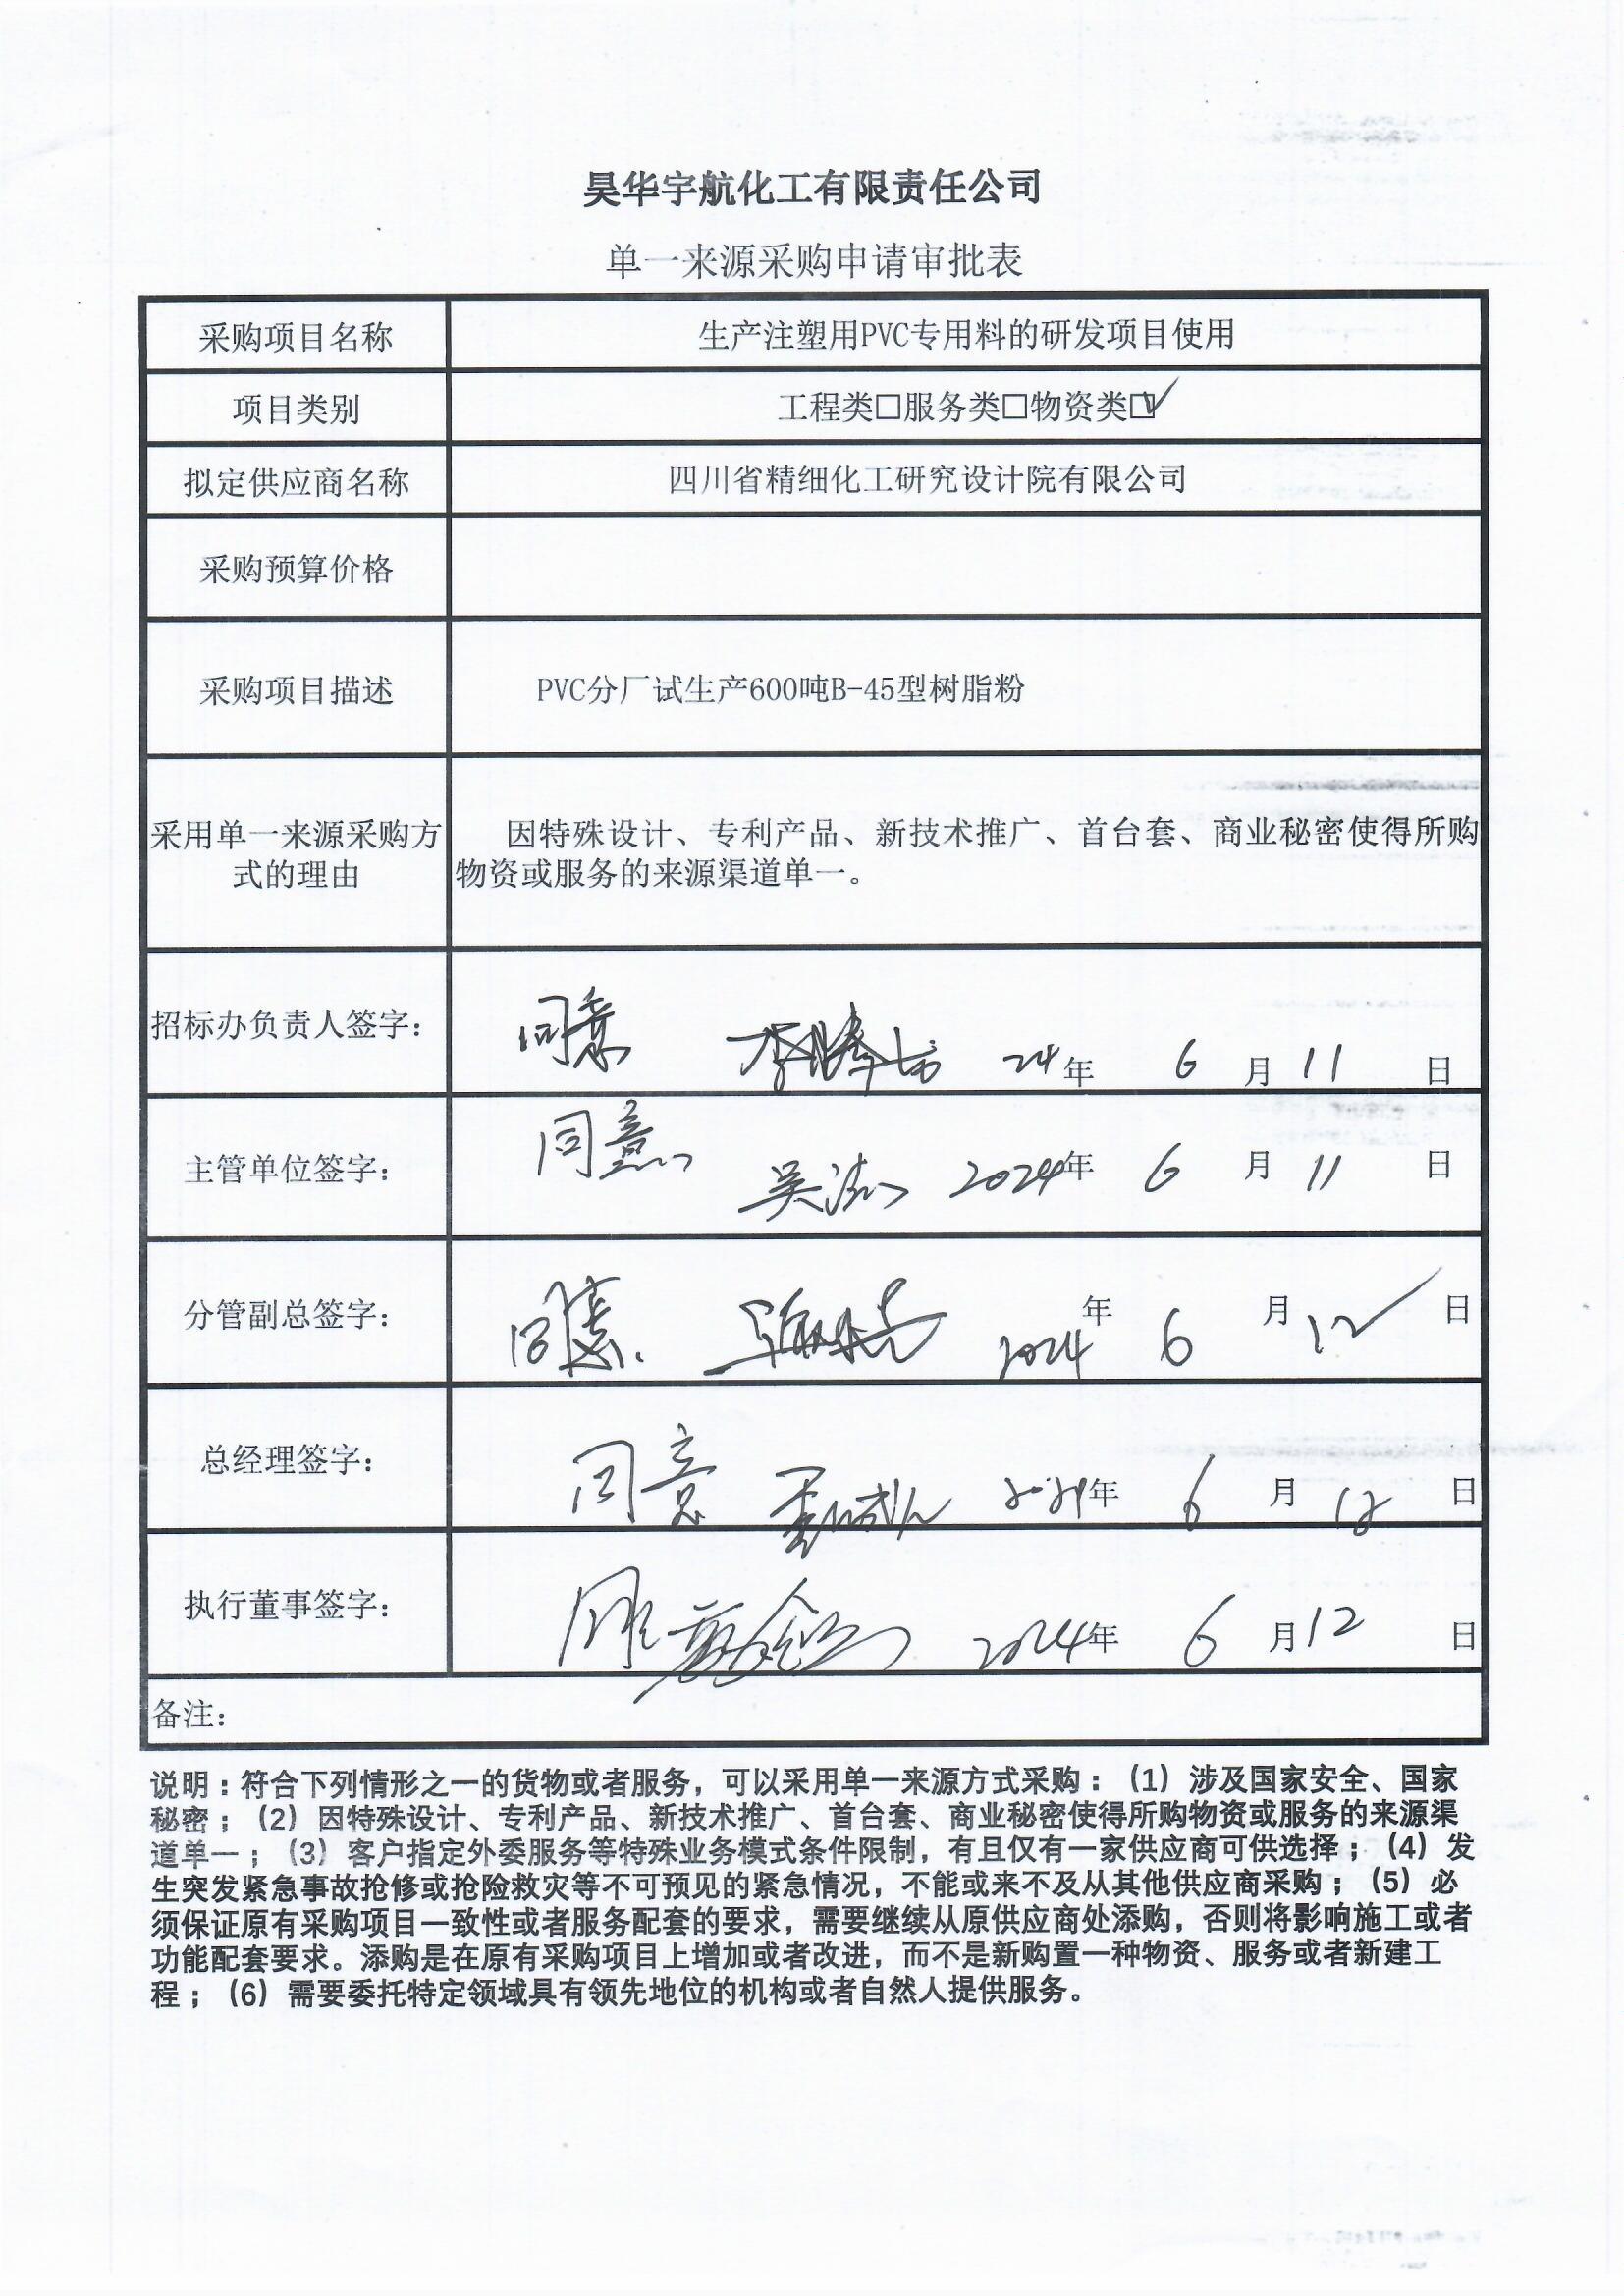 昊华宇航化工有限责任公司
单一来源采购申请审批表
采购项目名称 生产注塑用PVC专用料的研发项目使用
项目类别 工程类□服务类□物资类☑
拟定供应商名称 四川省精细化工研究设计院有限公司
采购预算价格
采购项目描述 PVC分厂试生产600吨B-45型树脂粉
采用单一来源采购方
式的理由
因特殊设计、专利产品、新技术推广、首台套、商业秘密使得所购
物资或服务的来源渠道单一。
招标办负责人签字: 同意 24年 6月 11日
主管单位签字: 同意 2024年 6月 11日
分管副总签字: 同意. 2024年 6月 12日
总经理签字: 同意 2024年 6月 12日
执行董事签字: 2024年 6月 12日
备注:
说明:符合下列情形之一的货物或者服务,可以采用单一来源方式采购:(1)涉及国家安全、国家
秘密;(2)因特殊设计、专利产品、新技术推广、首台套、商业秘密使得所购物资或服务的来源渠
道单一;(3)客户指定外委服务等特殊业务模式条件限制,有且仅有一家供应商可供选择;(4)发
生突发紧急事故抢修或抢险救灾等不可预见的紧急情况,不能或来不及从其他供应商采购;(5)必
须保证原有采购项目一致性或者服务配套的要求,需要继续从原供应商处添购,否则将影响施工或者
功能配套要求。添购是在原有采购项目上增加或者改进,而不是新购置一种物资、服务或者新建工
程;(6)需要委托特定领域具有领先地位的机构或者自然人提供服务。